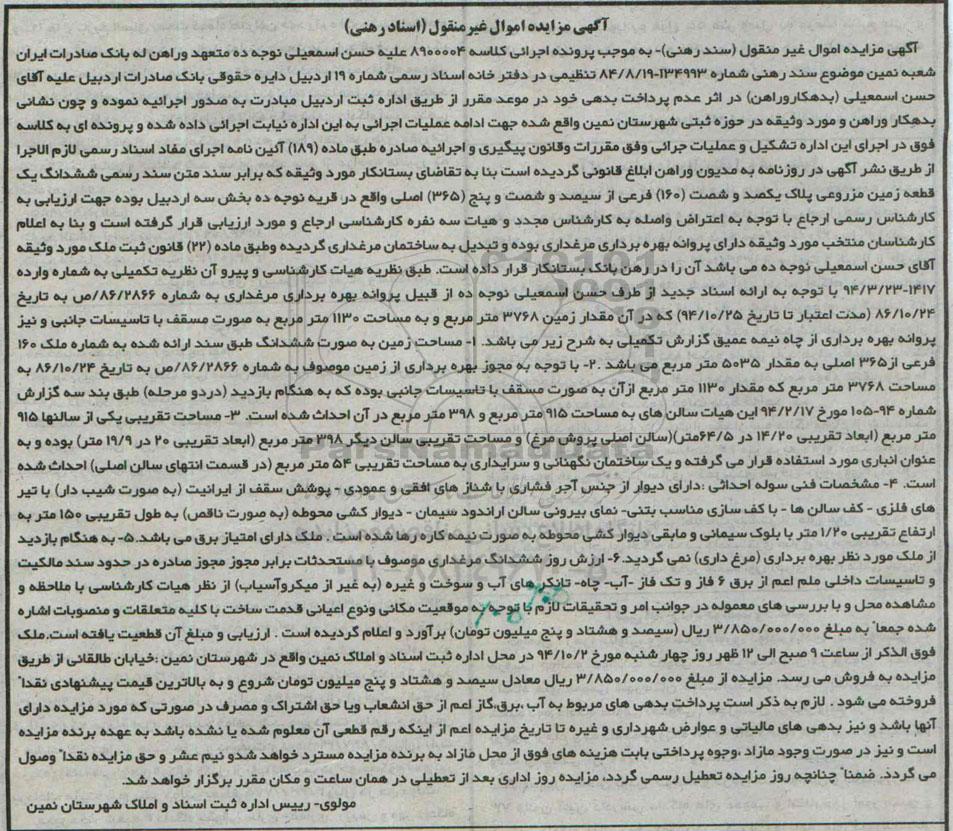 آگهی مزایده اموال غیر منقول (اسناد رهنی)
آگهی مزایده اموال غیر منقول (سند رهنی)- به موجب پرونده اجرائی کلاسه ۸۹۰۰۰۰۴ علیه حسن اسمعیلی نوجه ده متعهد وراهن له بانک صادرات ایران
شعبه نمین موضوع سند رهنی شماره ۱۳۴۹۹۳-۸۴/۸/۱۹ تنظیمی در دفتر خانه اسناد رسمی شماره ۱۹ اردبیل دایره حقوقی بانک صادرات اردبیل علیه آقای
حسن اسمعیلی (بدهکاروراهن) در اثر عدم پرداخت بدهی خود در موعد مقرر از طریق اداره ثبت اردبیل مبادرت به صدور اجرائیه نموده و چون نشانی
بدهکار وراهن و مورد وثیقه در حوزه ثبتی شهرستان نمین واقع شده جهت ادامه عملیات اجرائی به این اداره نیابت اجرائی داده شده و پرونده ای به کلاسه
فوق در اجرای این اداره تشکیل و عملیات جرائی وفق مقررات وقانون پیگیری و اجرائیه صادره طبق ماده (۱۸۹) آئین نامه اجرای مفاد اسناد رسمی لازم الاجرا
از طریق نشر آگهی در روزنامه به مدیون وراهن ابلاغ قانونی گردیده است بنا به تقاضای بستانکار مورد وثیقه که برابر سند متن سند رسمی ششدانگ یک
قطعه زمین مزروعی پلاک یکصد و شصت (۱۶۰) فرعی از سیصد و شصت و پنج (۳۶۵) اصلی واقع در قریه نوجه ده بخش سه اردبیل بوده جهت ارزیابی به
کارشناس رسمی ارجاع با توجه به اعتراض واصله به کارشناس مجدد و هیات سه نفره کارشناسی ارجاع و مورد ارزیابی قرار گرفته است و بنا به اعلام
کارشناسان منتخب مورد وثیقه دارای پروانه بهره برداری مرغداری بوده و تبدیل به ساختمان مرغداری گردیده وطبق ماده (۲۲) قانون ثبت ملک مورد وثیقه
آقای حسن اسمعیلی نوجه ده می باشد آن را در رهن بانک بستانکار قرار داده است. طبق نظریه هیات کارشناسی و پیرو آن نظریه تکمیلی به شماره وارده
۱۴۱۷-۹۴/۳/۲۳ با توجه به ارائه اسناد جدید از طرف حسن اسمعیلی نوجه ده از قبیل پروانه بهره برداری مرغداری به شماره ۸۶/۲۸۶۶/ص به تاریخ
۸۶/۱۰/۲۴ (مدت اعتبار تا تاریخ ۹۴/۱۰/۲۵) که در آن مقدار زمین ۳۷۶۸ متر مربع و به مساحت ۱۱۳۰ متر مربع به صورت مسقف با تاسیسات جانبی و نیز
پروانه بهره برداری از چاه نیمه عمیق گزارش تکمیلی به شرح زیر می باشد. ۱- مساحت زمین به صورت ششدانگ طبق سند ارائه شده به شماره ملک ۱۶۰
فرعی از۳۶۵ اصلی به مقدار ۵۰۳۵ متر مربع می باشد .۲- با توجه به مجوز بهره برداری از زمین موصوف به شماره ۸۶/۲۸۶۶/ص به تاریخ ۸۶/۱۰/۲۴ به
مساحت ۳۷۶۸ متر مربع که مقدار ۱۱۳۰ متر مربع ازآن به صورت مسقف با تاسیسات جانبی بوده که به هنگام بازدید (دردو مرحله) طبق بند سه گزارش
شماره ۹۴-۱۰۵ مورخ ۹۴/۲/۱۷ این هیات سالن های به مساحت ۹۱۵ متر مربع و ۳۹۸ متر مربع در آن احداث شده است. ۳- مساحت تقریبی یکی از سالنها ۹۱۵
متر مربع (ابعاد تقریبی ۱۴/۲۰ در ۶۴/۵متر)(سالن اصلی پروش مرغ) و مساحت تقریبی سالن دیگر ۳۹۸ متر مربع (ابعاد تقریبی ۲۰ در ۱۹/۹ متر) بوده و به
عنوان انباری مورد استفاده قرار می گرفته و یک ساختمان نگهبانی و سرایداری به مساحت تقریبی ۵۴ متر مربع (در قسمت انتهای سالن اصلی) احداث شده
است. ۴- مشخصات فنی سوله احداثی :دارای دیوار از جنس آجر فشاری با شناژ های افقی و عمودی - پوشش سقف از ایرانیت (به صورت شیب دار) با تیر
های فلزی - کف سالن ها - با کف سازی مناسب بتنی- نمای بیرونی سالن اراندود سیمان - دیوار کشی محوطه (به صورت ناقص) به طول تقریبی ۱۵۰ متر به
ارتفاع تقریبی ۱/۲۰ متر با بلوک سیمانی و مابقی دیوار کشی محوطه به صورت نیمه کاره رها شده است . ملک دارای امتیاز برق می باشد.۵- به هنگام بازدید
از ملک مورد نظر بهره برداری (مرغ داری) نمی گردید.۶- ارزش روز ششدانگ مرغداری موصوف با مستحدثات برابر مجوز مجوز صادره در حدود سند مالکیت
و تاسیسات داخلی ملم اعم از برق ۶ فاز و تک فاز -آب- چاه- تانکر های آب و سوخت و غیره (به غیر از میکروآسیاب) از نظر هیات کارشناسی با ملاحظه و
مشاهده محل و با بررسی های معموله در جوانب امر و تحقیقات لازم با توجه به موقعیت مکانی ونوع اعیانی قدمت ساخت با کلیه متعلقات و منصوبات اشاره
شده جمعاً به مبلغ ۳/۸۵۰/۰۰۰/۰۰۰ ریال (سیصد و هشتاد و پنج میلیون تومان) برآورد و اعلام گردیده است . ارزیابی و مبلغ آن قطعیت یافته است.ملک
فوق الذکر از ساعت ۹ صبح الی ۱۲ ظهر روز چهار شنبه مورخ ۹۴/۱۰/۲ در محل اداره ثبت اسناد و املاک نمین واقع در شهرستان نمین :خیابان طالقانی از طریق
مزایده به فروش می رسد. مزایده از مبلغ ۳/۸۵۰/۰۰۰/۰۰۰ ریال معادل سیصد و هشتاد و پنج میلیون تومان شروع و به بالاترین قیمت پیشنهادی نقداً
فروخته می شود . لازم به ذکر است پرداخت بدهی های مربوط به آب ،برق،گاز اعم از حق انشعاب ویا حق اشتراک و مصرف در صورتی که مورد مزایده دارای
آنها باشد و نیز بدهی های مالیاتی و عوارض شهرداری و غیره تا تاریخ مزایده اعم از اینکه رقم قطعی آن معلوم شده یا نشده باشد به عهده برنده مزایده
است و نیز در صورت وجود مازاد ،وجوه پرداختی بابت هزینه های فوق از محل مازاد به برنده مزایده مسترد خواهد شدو نیم عشر و حق مزایده نقداً وصول
می گردد. ضمناً چنانچه روز مزایده تعطیل رسمی گردد، مزایده روز اداری بعد از تعطیلی در همان ساعت و مکان مقرر برگزار خواهد شد.
مولوی- رییس اداره ثبت اسناد و املاک شهرستان نمین
ParsNamadData